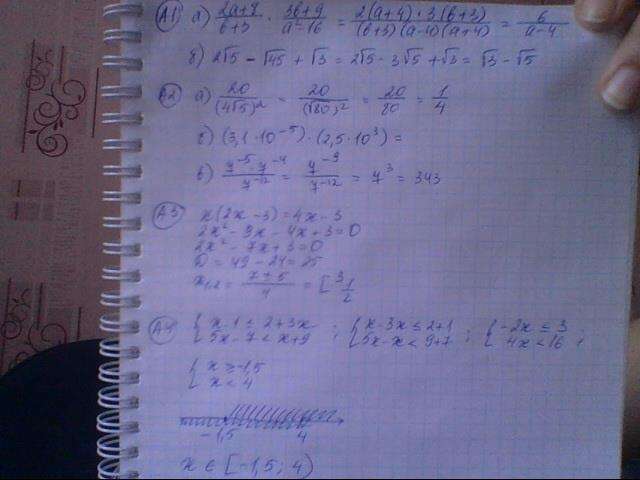 А1 а) (2a+8)/(b+3) · (3b+9)/(a²-16) = (2(a+4)·3(b+3))/((b+3)(a-4)(a+4)) = 6/(a-4)
б) 2√5 - √45 + √3 = 2√5 - 3√5 + √3 = √3 - √5
А2 а) 20/(4√5)² = 20/(√80)² = 20/80 = 1/4
б) (3,1·10⁻⁵)·(2,5·10³) =
в) (7⁻⁵·7⁻⁴)/7⁻¹² = 7⁻⁹/7⁻¹² = 7³ = 343
А3 x(2x-3)=4x-3
2x²-3x-4x+3=0
2x²-7x+3=0
D = 49-24=25
x₁,₂ = (7±5)/4 = [3 1/2
А4 {x-1 ≤ 2+3x 5x-7<x+9 ; {x-3x≤2+1 5x-x<9+7 ; {-2x≤3 4x<16 ;
{x ≥ -1,5
x < 4
-1,5 4
x ∈ [-1,5; 4)